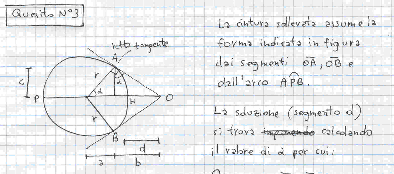 Quesito N°3
retta tangente
A
c
r
α
α
P
H
O
r
B
d
a
b
La cintura sollevata assume la
forma indicata in figura
dai segmenti OA, OB e
dall'arco APB.
La soluzione (segmento d)
si trova calcolando
il valore di α per cui: